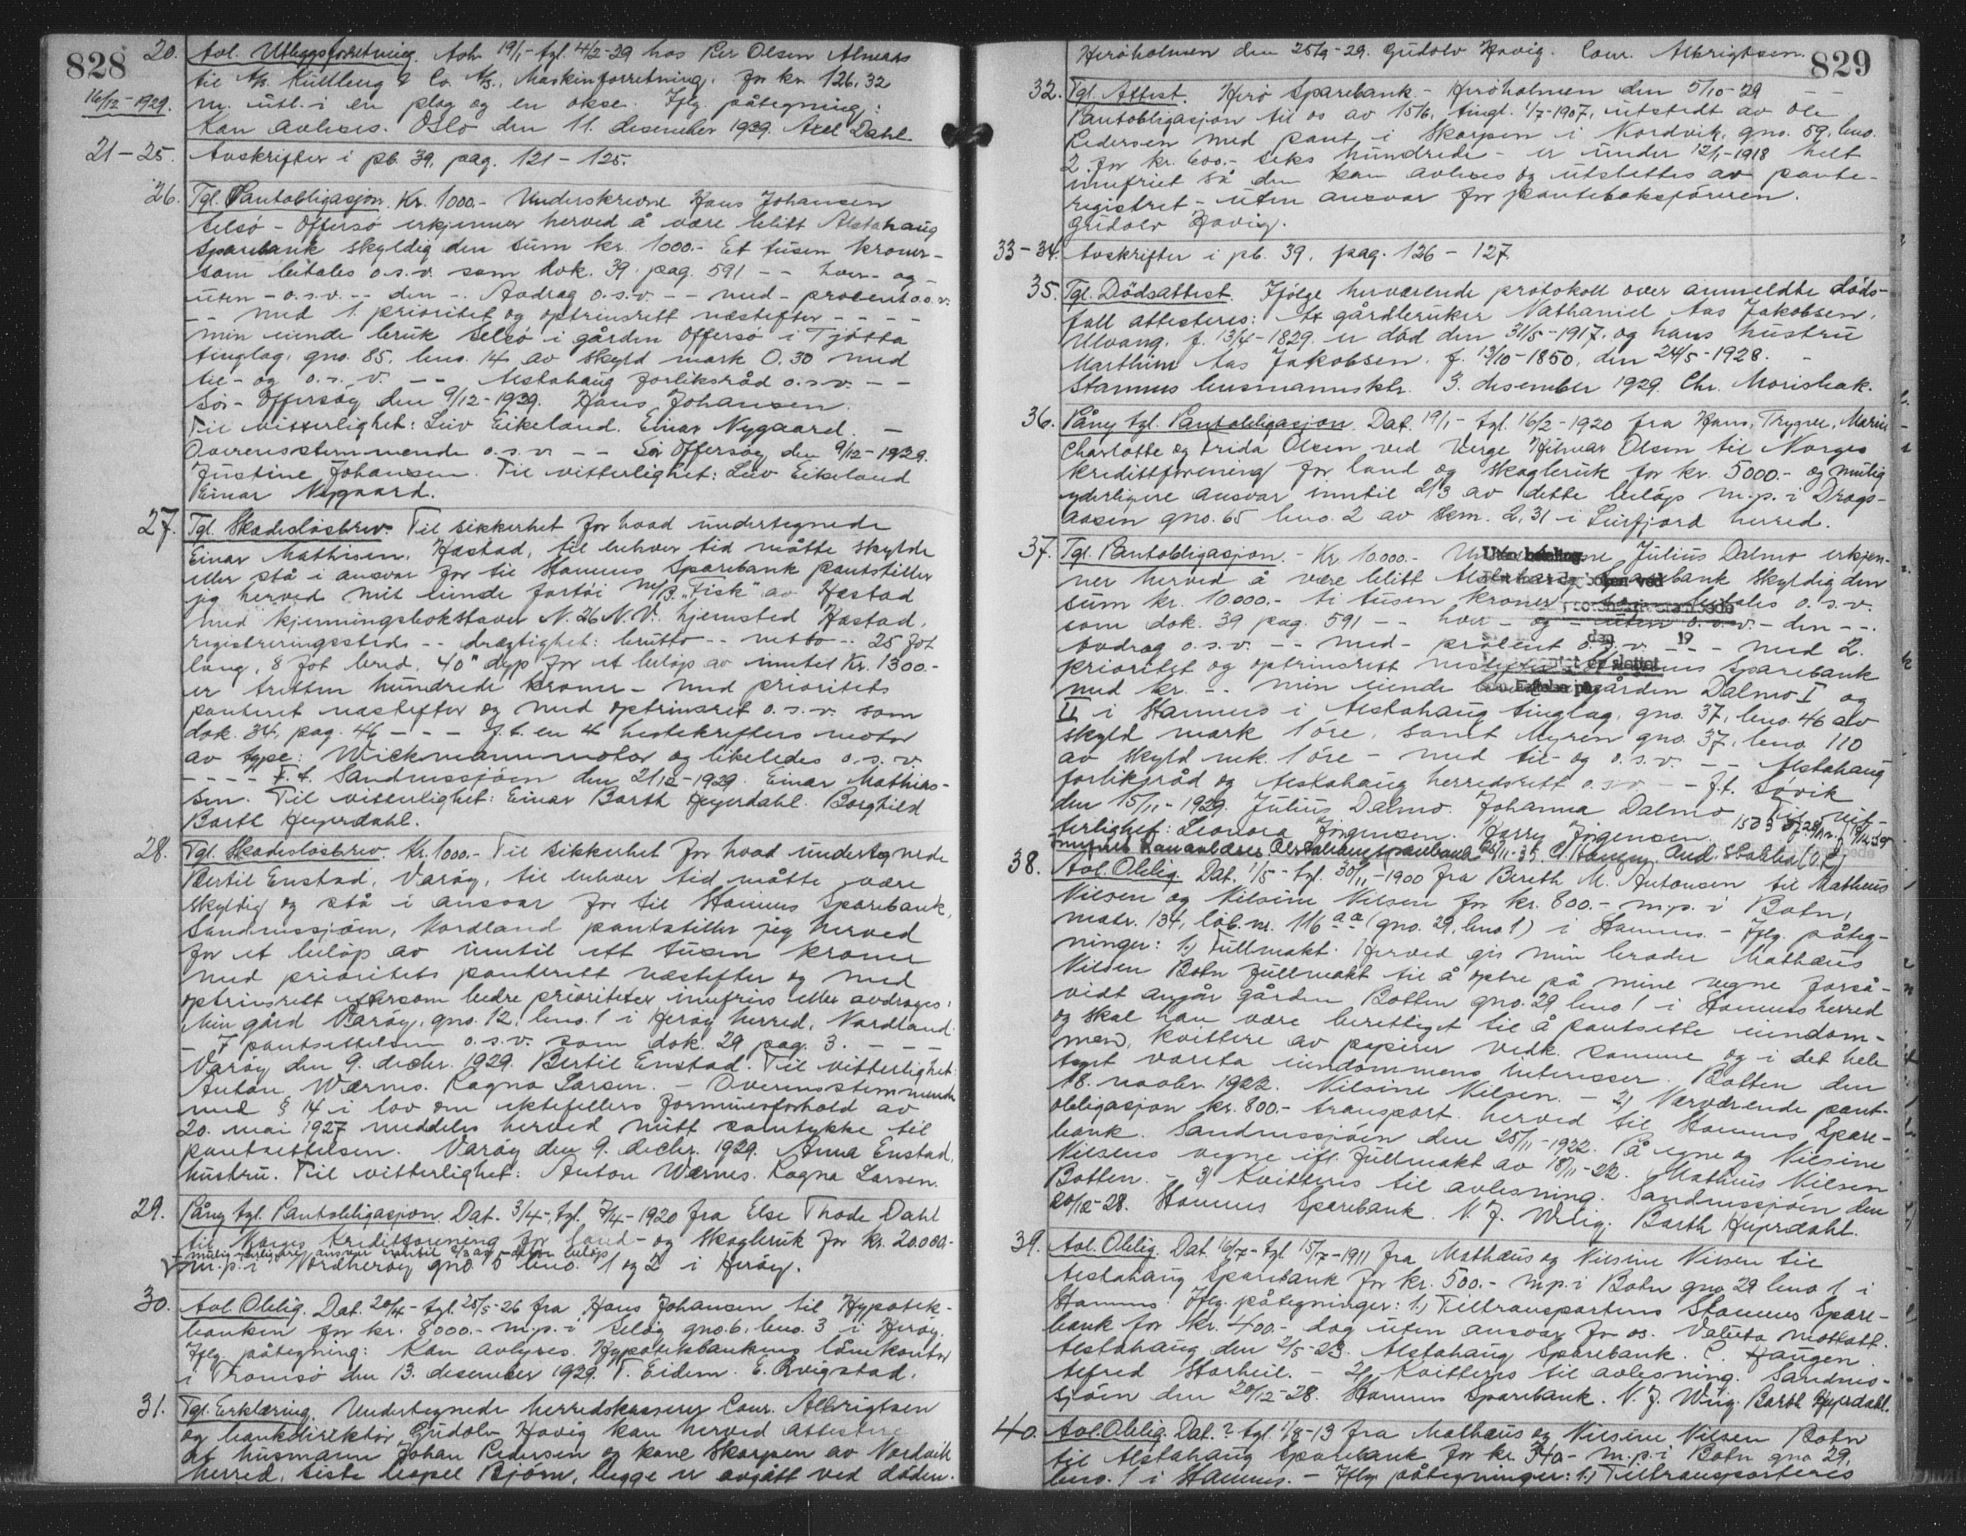 828
20. Avl. Utleggsforretning. Avh. 19/1 - tgl. 4/2-29 hos Per Olsen Almaas
til A/s Küllberg & Co. A/s, Maskinforretning, for kr. 126,32
16/12-1929. m. utl. i en plog og en okse. Iflg. påtegning:
Kan avleses. Oslo den 11. desember 1929. Axel Dahl
21-25. Avskrifter i pb. 39, pag. 121 - 125.
26. Tgl. Pantobligasjon. Kr. 1000.- Underskrevne Hans Johansen
Selsö - Offersö erkjenner herved å være blitt Alstahaug
Sparebank skyldig den sum kr. 1000.- Et tusen kroner -
som betales o.s.v. som dok. 39. pag. 591 - - hver- og
uten - o.s.v. -- den -. Avdrag o.s.v. -- med - procent o.s.v.
-- med 1. prioritet og optrinsrett næstefter - - - -
min eiende bruk Selsö i gården Offersö i Tjötta
tinglag, gno. 85. bno. 14 av skyld mark 0.30 med
til- og o.s.v. -- Alstahaug forliksråd o.s.v. --
Sör-Offersöy den 9/12-1929. Hans Johansen.
Til vitterlighet: Leiv Eikeland. Einar Nygaard. -
Overensstemmende o.s.v. -- Sör Offersöy den 9/12-1929.
Justine Johansen. Til vitterlighet: Leiv Eikeland
Einar Nygaard.
27. Tgl. Skadeslösbrev. Til sikkerhet for hvad undertegnede
Einar Mathisen, Hæstad, til enhver tid måtte skylde
eller stå i ansvar for til Stamnes Sparebank pantstiller
jeg herved mit eiende fartöi m/s "Fisk" av Hæstad
med kjenningsbokstaver N. 26 N.V. hjemsted Hæstad,
registreringssted -- drægtighet: brutto -- netto -- 25 fot
lang, 8 fot bred, 40" dyp for et belöp av inntil Kr. 1300.-
er tretten hundrede kroner - med prioritets
panterett næstefter og med optrinsret o.s.v. som
dok. 34. pag. 46 - - - f.t. en 4 hestekrefters motor
av type: Wickmannmotor og likeledes o.s.v.
- - - - F.t. Sandnessjöen den 21/12-1929. Einar Mathis-
sen. Til vitterlighet: Einar Barth Heyerdahl. Borghild
Barth Heyerdahl.
28. Tgl. Skadeslösbrev. Kr. 1000.- Til sikkerhet for hvad undertegnede
Bertil Enstad, Varöy, til enhver tid måtte være
skyldig og stå i ansvar for til Stamnes Sparebank,
Sandnessjöen, Nordland pantstiller jeg herved
for et belöp av inntil ett tusen kroner
med prioritets panterett næstefter og med
optrinsrett ettersom bedre prioriteter innfries eller avdrages:
Min gård Varöy, gno. 12, bno. 1 i Heröy herred, Nordland.
- I pantsettelsen o.s.v. som dok. 29 pag. 3. - - -
Varöy den 9. decbr. 1929. Bertil Enstad. Til vitterlighet:
Anton Wærnes. Ragna Larsen. - Overensstemmende
med § 14 i lov om ektefellers formuesforhold av
20. mai 1927 meddeles herved mitt samtykke til
pantsettelsen. Varöy den 9. decbr. 1929. Anna Enstad,
hustru. Til vitterlighet: Anton Wærnes. Ragna Larsen.
29. Påny tgl. Pantobligasjon. Dat. 3/4-, tgl. 7/4-1920 fra Else Thode Dahl
til Norges Kredittforening for land- og skogbruk for kr. 20.000.-
- mulig ytterligere ansvar inntil 2/3 av dette belöp
m.p. i Nordheröy gno. 5 bno. 1 og 2 i Heröy.
30. Avl. Oblig. Dat. 20/4 - tgl. 25/5-26 fra Hans Johansen til Hypotek-
banken for kr. 8000.- m.p. i Selöy gno. 6, bno. 3 i Heröy.
Iflg. påtegning: Kan avlyses. Hypotekbankens lånekontor
i Tromsö den 13. desember 1929. T. Eidem. E. Qvigstad.
31. Tgl. Erklæring. Undertegnede herredskasserer Conr. Albrigtsen
og bankdirektör Gudolv Havig kan herved attestere
at husmann Johan Pedersen og kone Skarpen av Nordvik
herred, siste bopel Björn, begge er avgått ved döden.
829
Heröholmen den 25/9-29. Gudolv Havig. Conr. Albrigtsen.
32. Tgl. Attest. Herö Sparebank - Heröholmen den 5/10-29 - -
Pantobligasjon til os av 15/6, tingl. 1/7-1907, utstedt av Ole
Pedersen med pant i Skarpen i Nordvik, gno. 59, bno.
2. for kr. 600.- seks hundrede - er under 12/1-1918 helt
innfriet så den kan avleses og utslettes av pante-
registret - uten ansvar for panteboksföreren.
Gudolv Havig.
33-34. Avskrifter i pb. 39, pag. 126 - 127
35. Tgl. Dödsattest. Ifölge herværende protokoll over anmeldte döds-
fall attesteres: At gårdbruker Nathaniel Aas Jakobsen,
Ulvang, f. 13/4-1829. er död den 31/5-1917. og hans hustru
Marthine Aas Jakobsen. f. 13/10-1850. den 24/5-1928. -
Stamnes lensmannsktr. 3. desember 1929. Chr. Morisbak.
36. Påny tgl. Pantobligasjon. Dat. 19/1 - tgl. 16/2-1920 fra Hans, Trygve, Marie
Charlotte og Frida Olsen ved Verge Hilmar Olsen til Norges
kredittforening for land og skogbruk for kr. 5000.- og mulig
yderligere ansvar inntil 2/3 av dette belöp m.p. i Drags-
aasen gno. 65 bno. 2 av skm. 2,31 i Leirfjord herred.
37. Tgl. Pantobligasjon. - Kr. 10.000.- Julius Dalmo erkjen-
ner herved å være blitt Alstahaug Sparebank skyldig den
sum kr. 10.000.- ti tusen kroner betales o.s.v.
som dok. 39 pag. 591 -- hver- og uten o.s.v. - den --.
Avdrag o.s.v. -- med- procent o.s.v. - - - med 2.
prioritet og optrinsrett næstefter Stamnes Sparebank
med kr. -. min eiende gården Dalmo I og
II i Stamnes i Alstahaug tinglag, gno. 37, bno. 46 av
skyld mark 1 öre, samt Myren gno. 37, bno 110
av skyld mk. 1 öre - med til- og o.s.v. -- Alstahaug
forliksråd og Alstahaug herredsrett o.s.v. -- f.t. Sövik
den 15/11-1929. Julius Dalmo. Johanna Dalmo. Til vit-
terlighet: Leonora Jörgensen. Harry Jörgensen.
38. Avl. Oblig. Dat. 1/5 - tgl. 30/11-1900 fra Bereth M. Antonsen til Mathæus
Nilsen og Nilsine Nilsen for kr. 800.- m.p. i Botn,
matr. 134, löb. nr. 116 aa (gno. 29, bno 1) i Stamnes. - Iflg. påteg-
ninger: 1.) Fullmakt. Herved gis min broder Mathæus
Nilsen Botn fullmakt til å optre på mine vegne forså-
vidt angår gården Botten gno. 29 bno 1 i Stamnes herred
og skal han være berettiget til å pantsette eiendom-
men, kvittere av papirer vedk. samme og i det hele
tatt vareta eiendommens interesser. Botten den
18. novbr. 1922. Nilsine Nilsen. - 2) Nærværende pant-
obligasjon kr. 800.- transport. herved til Stamnes Spare-
bank. Sandnessjöen den 25/11-1922. På egne og Nilsine
Nilsens vegne ifl. fullmakt av 18/11-22. Mathæus Nilsen
Botten. - 3) Kvitteres til avlesning. Sandnessjöen den
20/12-28. Stamnes Sparebank. N. J. Wiig. Barth Heyerdahl.
39. Avl. Oblig. Dat. 16/7 - tgl. 15/7-1911 fra Mathæus og Nilsine Nilsen til
Alstahaug Sparebank for kr. 500.- m.p. i Botn gno 29 bno 1 i
Stamnes. Iflg. påtegninger: 1.) Tiltransporteres Stamnes Spare-
bank for kr. 400.- dog uten ansvar for os. Valuta mottatt.
Alstahaug den 2/5-23. Alstahaug Sparebank. C. Haugen.
Alfred Storheil. - 2) Kvitteres til avlesning. Sandnes-
sjöen den 20/12-28. Stamnes Sparebank. N. J. Wiig. Barth Heyerdahl.
40. Avl. Oblig. Dat. ? tgl. 1/8-13 fra Mathæus og Nilsine Nilsen Botn
til Alstahaug Sparebank for kr. 340.- m.p. i Botn gno 29,
bno. 1 i Stamnes. - Iflg. påtegninger: 1.) Tiltransporteres